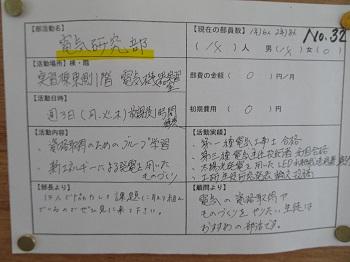 【部活動名】
電気研究部
【現在の部員数】
No.32
(18)人 男(18)女(0)
【活動場所】棟・階
実習棟東側1階 電気
部費の金額 (0)円/月
【活動日時】
週3日(月.火.木)放課後1時間
初期費用 (0)円
【活動内容】
・資格取得のためのグループ学習
・新エネルギーによる発電を用いた
ものづくり
【活動実績】
・第一種電気工事士 合格
・第三種電気主任技術者
・太陽光発電を用いたLED
【部長より】
18人で協力して課題に取り組ん
でいるのでぜひ見に来て下さい。
【顧問より】
電気の資格取得や
ものづくりをやりたい生徒は
おすすめの部活です。